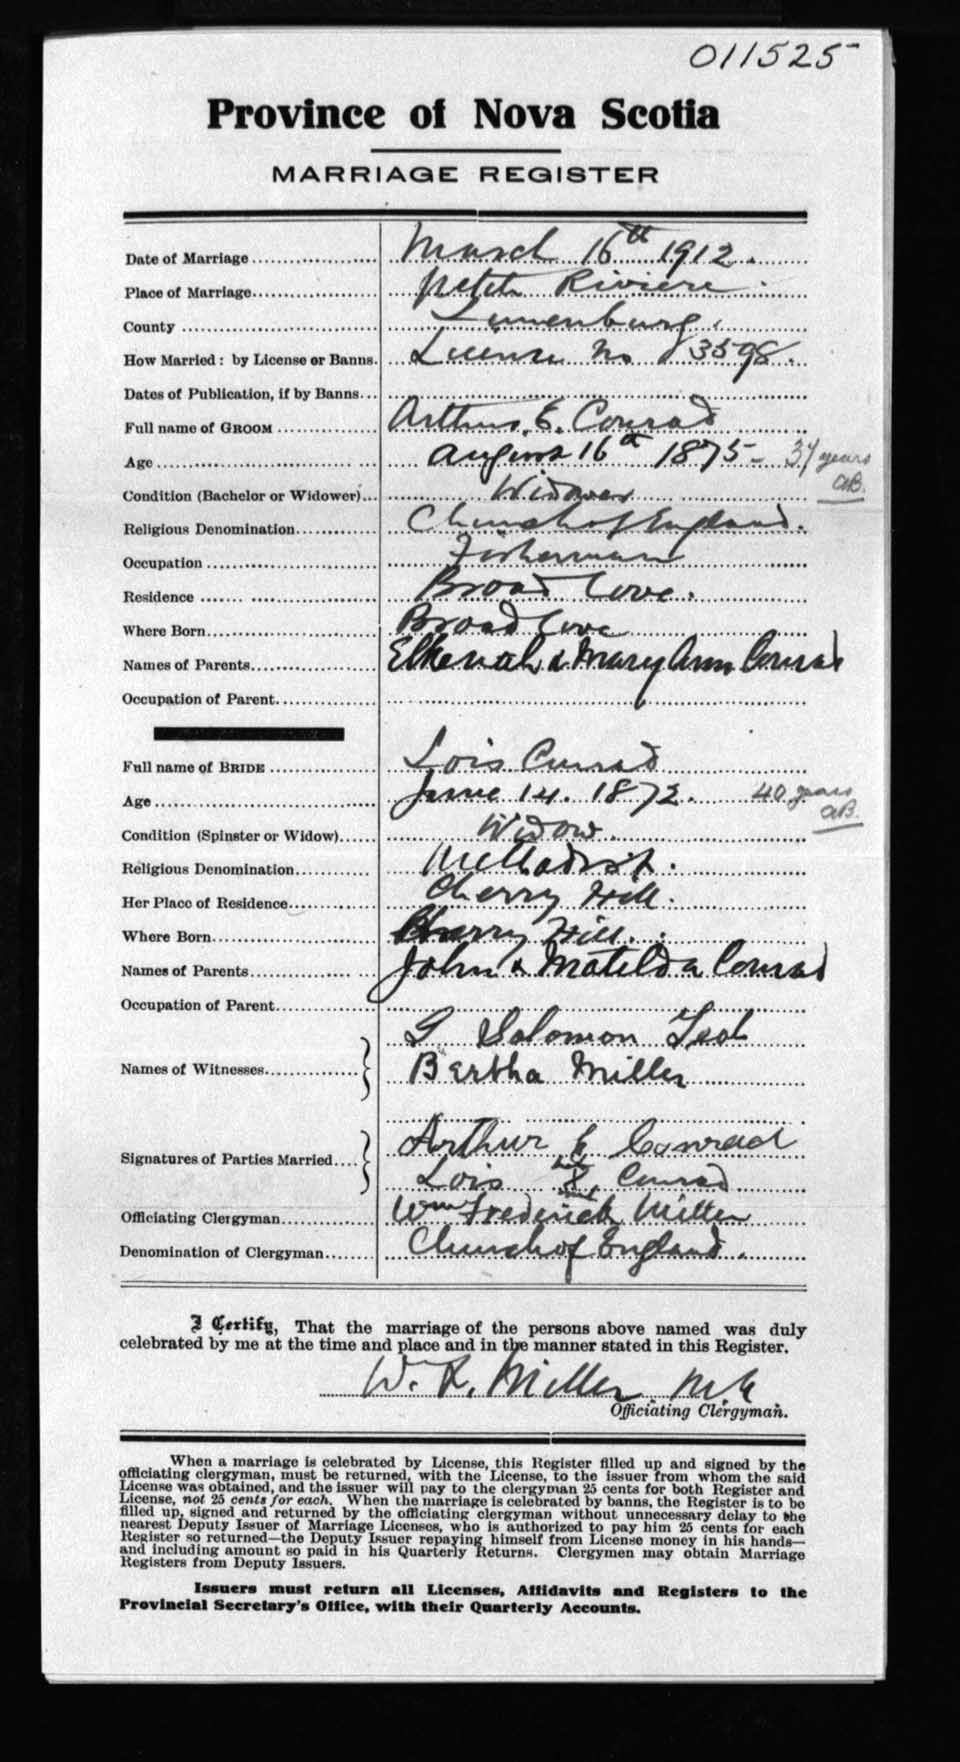 011525
Province of Nova Scotia
MARRIAGE REGISTER
Date of Marriage March 16th 1912.
Place of Marriage Petite Riviere
County Lunenburg.
How Married: by License or Banns. License No 3598.
Dates of Publication, if by Banns
Full name of GROOM Arthur E. Conrad
Age August 16th 1875 - 37 years
aB.
Condition (Bachelor or Widower) Widower
Religious Denomination Church of England.
Occupation Fisherman
Residence Broad Cove.
Where Born Broad Cove
Names of Parents Elkenah & Mary Ann Conrad
Occupation of Parent
Full name of BRIDE Lois Conrad
Age June 14. 1872. 40 years
aB.
Condition (Spinster or Widow) Widow.
Religious Denomination Methodist.
Her Place of Residence Cherry Hill.
Where Born Cherry Hill.
Names of Parents John & Matilda Conrad
Occupation of Parent
Names of Witnesses
Solomon
Bertha Miller
Signatures of Parties Married
Arthur E Conrad
Lois her X mark Conrad
Officiating Clergyman Wm Frederick Miller
Denomination of Clergyman Church of England.
I Certify, That the marriage of the persons above named was duly
celebrated by me at the time and place and in the manner stated in this Register.
W. F. Miller
Officiating Clergyman.
When a marriage is celebrated by License, this Register filled up and signed by the
officiating clergyman, must be returned, with the License, to the issuer from whom the said
License was obtained, and the issuer will pay to the clergyman 25 cents for both Register and
License, not 25 cents for each. When the marriage is celebrated by banns, the Register is to be
filled up, signed and returned by the officiating clergyman without unnecessary delay to the
nearest Deputy Issuer of Marriage Licenses, who is authorized to pay him 25 cents for each
Register so returned—the Deputy Issuer repaying himself from License money in his hands—
and including amount so paid in his Quarterly Returns. Clergymen may obtain Marriage
Registers from Deputy Issuers.
Issuers must return all Licenses, Affidavits and Registers to the
Provincial Secretary's Office, with their Quarterly Accounts.